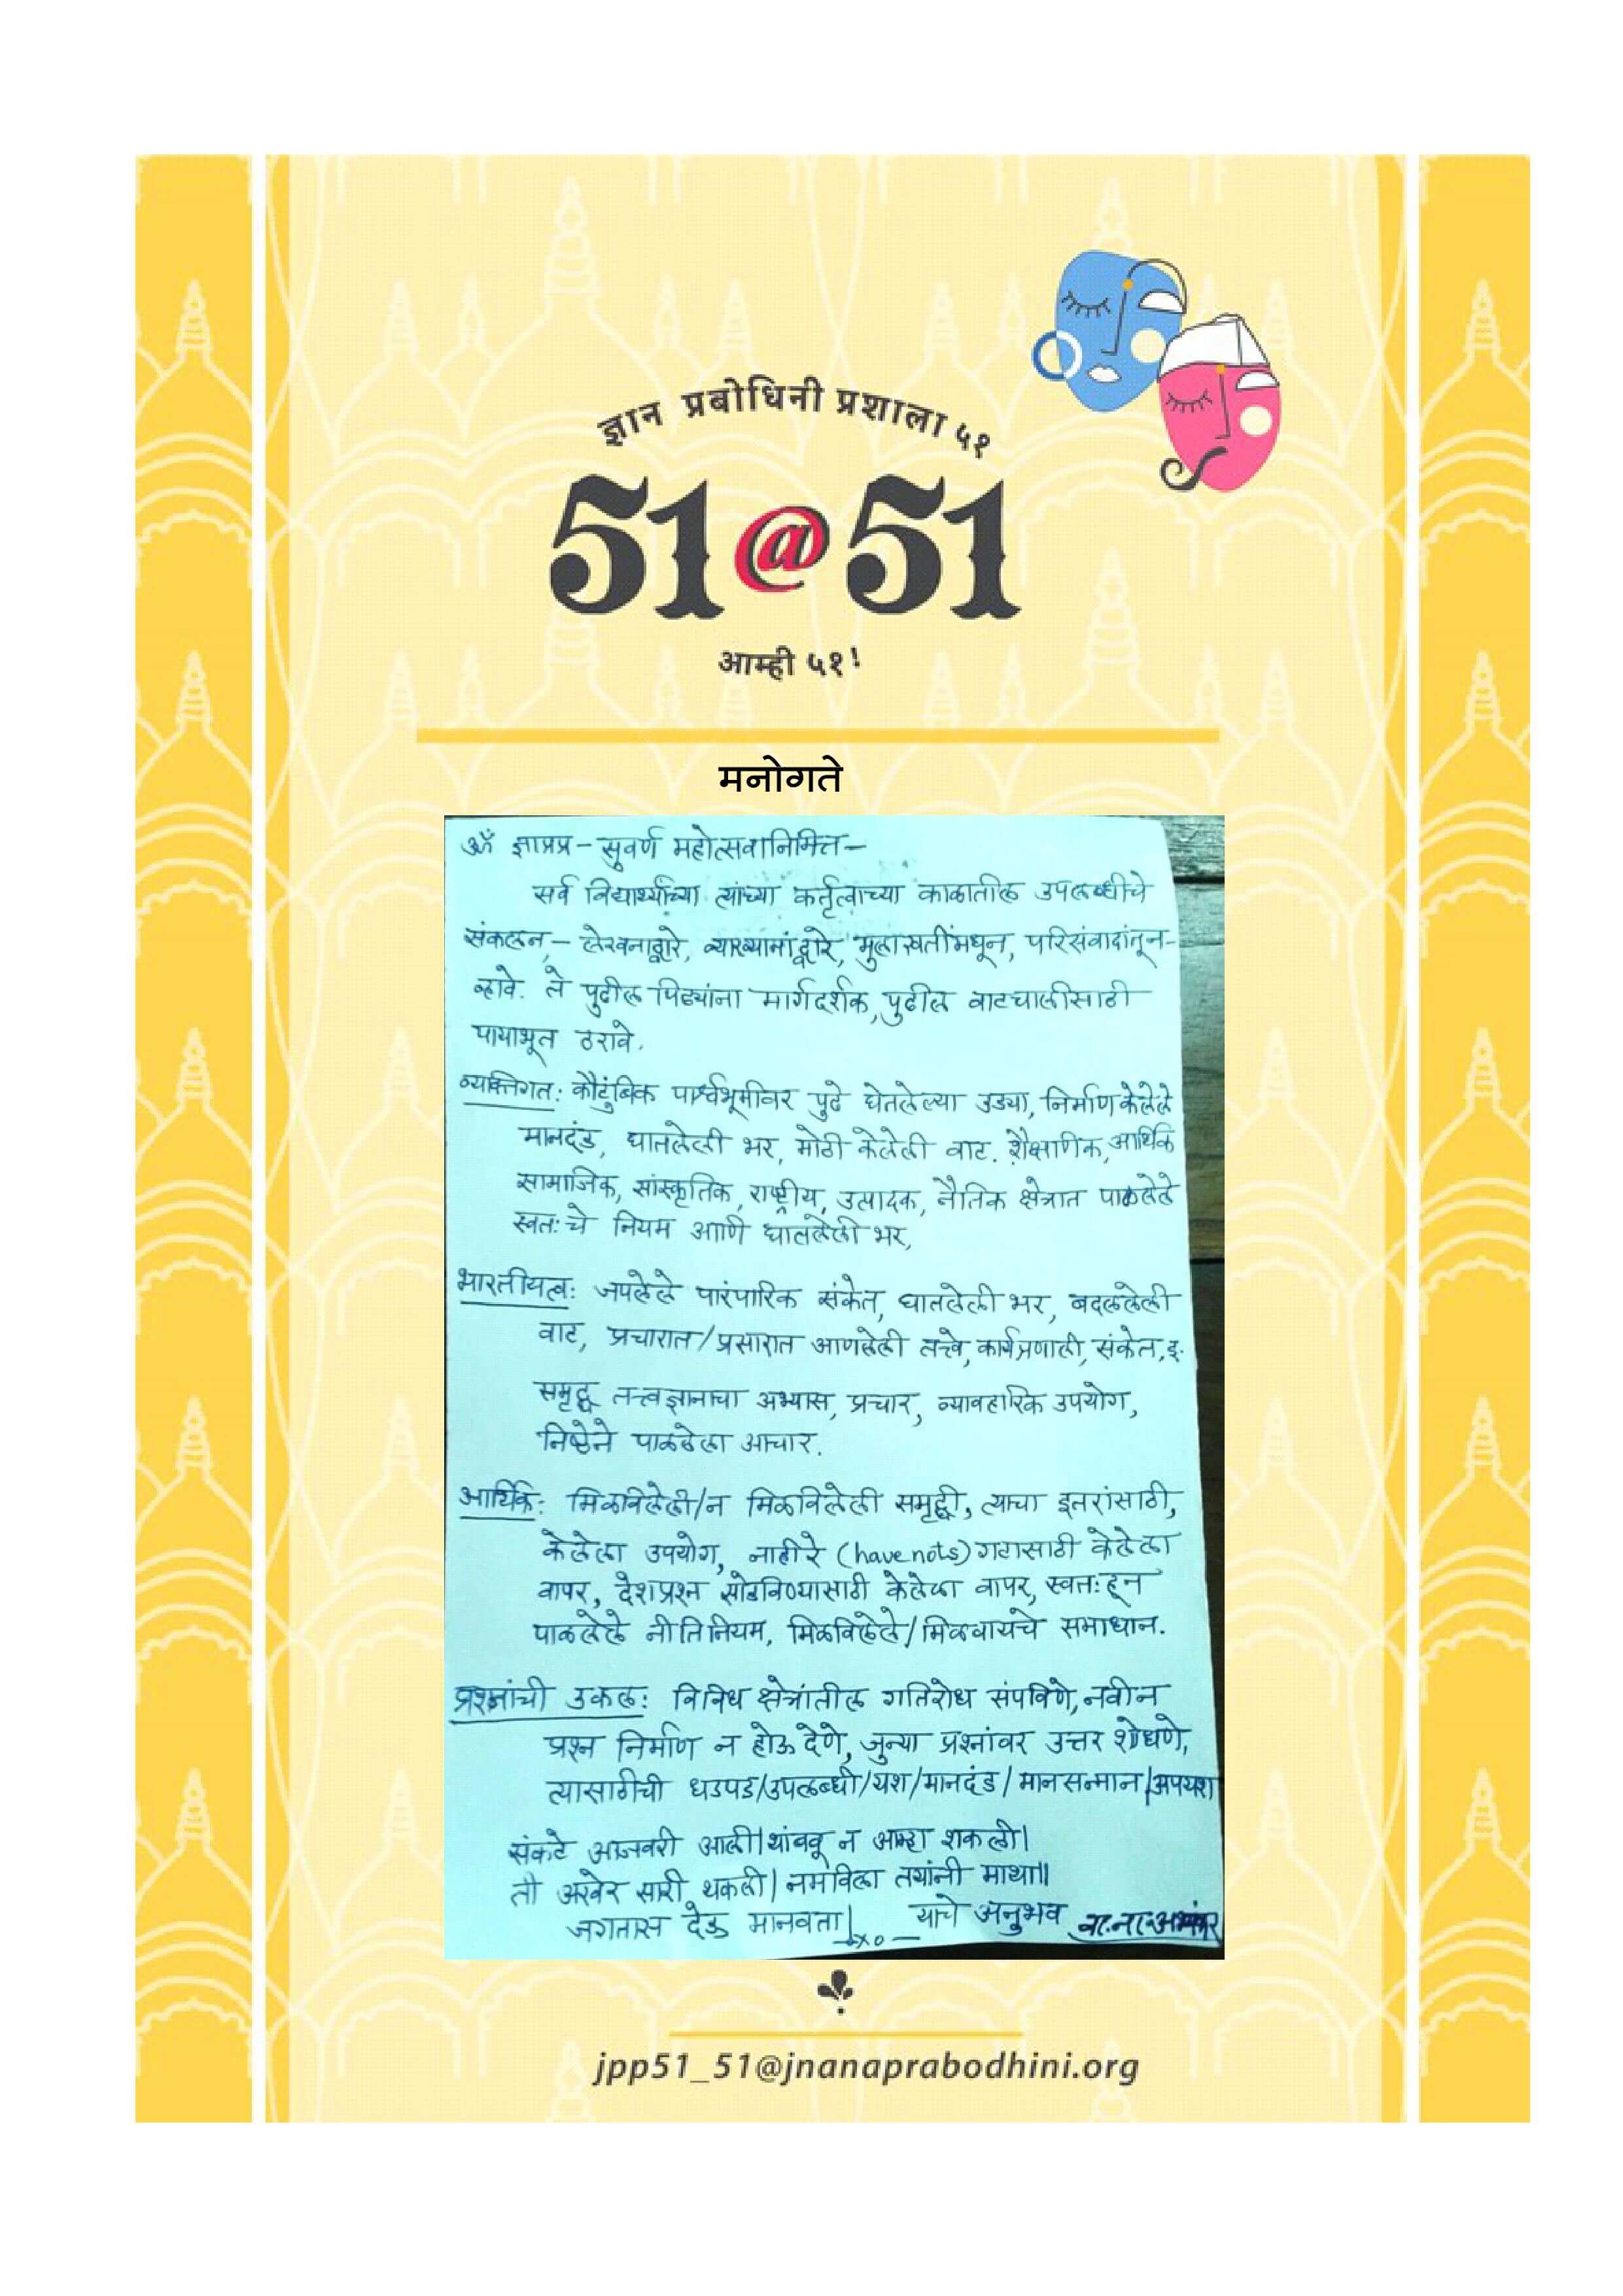 ज्ञान प्रबोधिनी प्रशाला ५१
51@51
आम्ही ५१!
मनोगते
ॐ ज्ञाप्रप्र - सुवर्ण महोत्सवानिमित्त -
सर्व विद्यार्थ्यांच्या त्यांच्या कर्तृत्वाच्या काळातील उपलब्धीचे
संकलन, - लेखनाद्वारे, व्याख्यानांद्वारे, मुलाखतींमधून, परिसंवादांतून-
व्हावे. ते पुढील पिढ्यांना मार्गदर्शक, पुढील वाटचालीसाठी
पायाभूत ठरावे.
व्यक्तिगत: कौटुंबिक पार्श्वभूमीवर पुढे घेतलेल्या उड्या, निर्माण केलेले
मानदंड, घातलेली भर, मोठी केलेली वाट. शैक्षणिक, आर्थिक
सामाजिक, सांस्कृतिक, राष्ट्रीय, उत्पादक, नैतिक क्षेत्रात पाळलेले
स्वतःचे नियम आणि घातलेली भर,
भारतीयत्व: जपलेले पारंपारिक संकेत, घातलेली भर, बदललेली
वाट, प्रचारात/प्रसारात आणलेली तत्त्वे, कार्यप्रणाली, संकेत, इ.
समृद्ध तत्त्वज्ञानाचा अभ्यास, प्रचार, व्यावहारिक उपयोग,
निष्ठेने पाळलेला आचार.
आर्थिक: मिळविलेली/न मिळविलेली समृद्धी, त्याचा इतरांसाठी,
केलेला उपयोग, नाहीरे (have nots) गटासाठी केलेला
वापर, देशप्रश्न सोडविण्यासाठी केलेला वापर, स्वतःहून
पाळलेले नीतिनियम, मिळविलेले/मिळवायचे समाधान.
प्रश्नांची उकल: विविध क्षेत्रांतील गतिरोध संपविणे, नवीन
प्रश्न निर्माण न होऊ देणे, जुन्या प्रश्नांवर उत्तर शोधणे,
त्यासाठीची धडपड/उपलब्धी/यश/मानदंड/मानसन्मान/अपयश
संकटे आजवरी आली। थांबवू न आम्हा शकली।
ती अखेर सारी थकली। नमविला तयांनी माथा॥
जगतास देऊ मानवता। - याचे अनुभव
jpp51_51@jnanaprabodhini.org